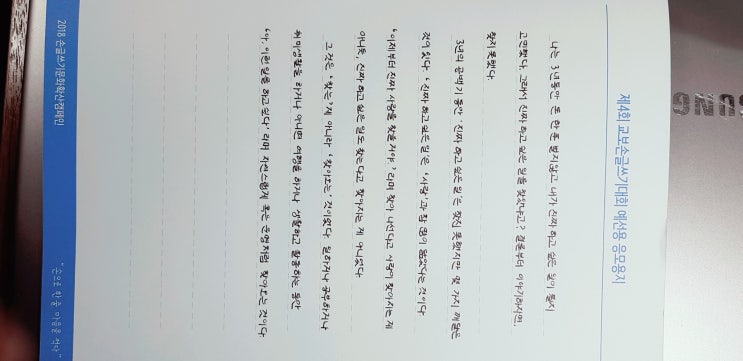 제4회 교보손글쓰기대회 예선용 응모용지
나는 3년동안 돈 한 푼 벌지않고 내가 진짜 하고 싶은 일이 뭘지
고민했다. 그래서 진짜 하고 싶은 일을 찾았냐고? 결론부터 이야기하자면,
찾지 못했다.
3년의 공백기 동안 '진짜 하고싶은 일'은 찾지 못했지만 몇 가지 깨달은
것이 있다. '진짜 하고싶은 일'은 '사랑'과 참 많이 닮았다는 것이다
"이제부터 진짜 사랑을 찾을 거야."라며 찾아 나선다고 사랑이 찾아지는 게
아니듯, 진짜 하고 싶은 일도 찾는다고 찾아지는 게 아니었다
그것은 '찾는'게 아니라 '찾아오는' 것이었다. 일하거나 공부하거나
취미생활을 하거나 아니면 여행을 하거나 생활하고 활동하는 동안
'아, 이런 일을 하고싶다' 라며 자연스럽게 혹은 운명처럼 찾아오는 것이다
2018 손글쓰기문화확산캠페인
"손으로 한 줄 마음을 적다"
SUNG